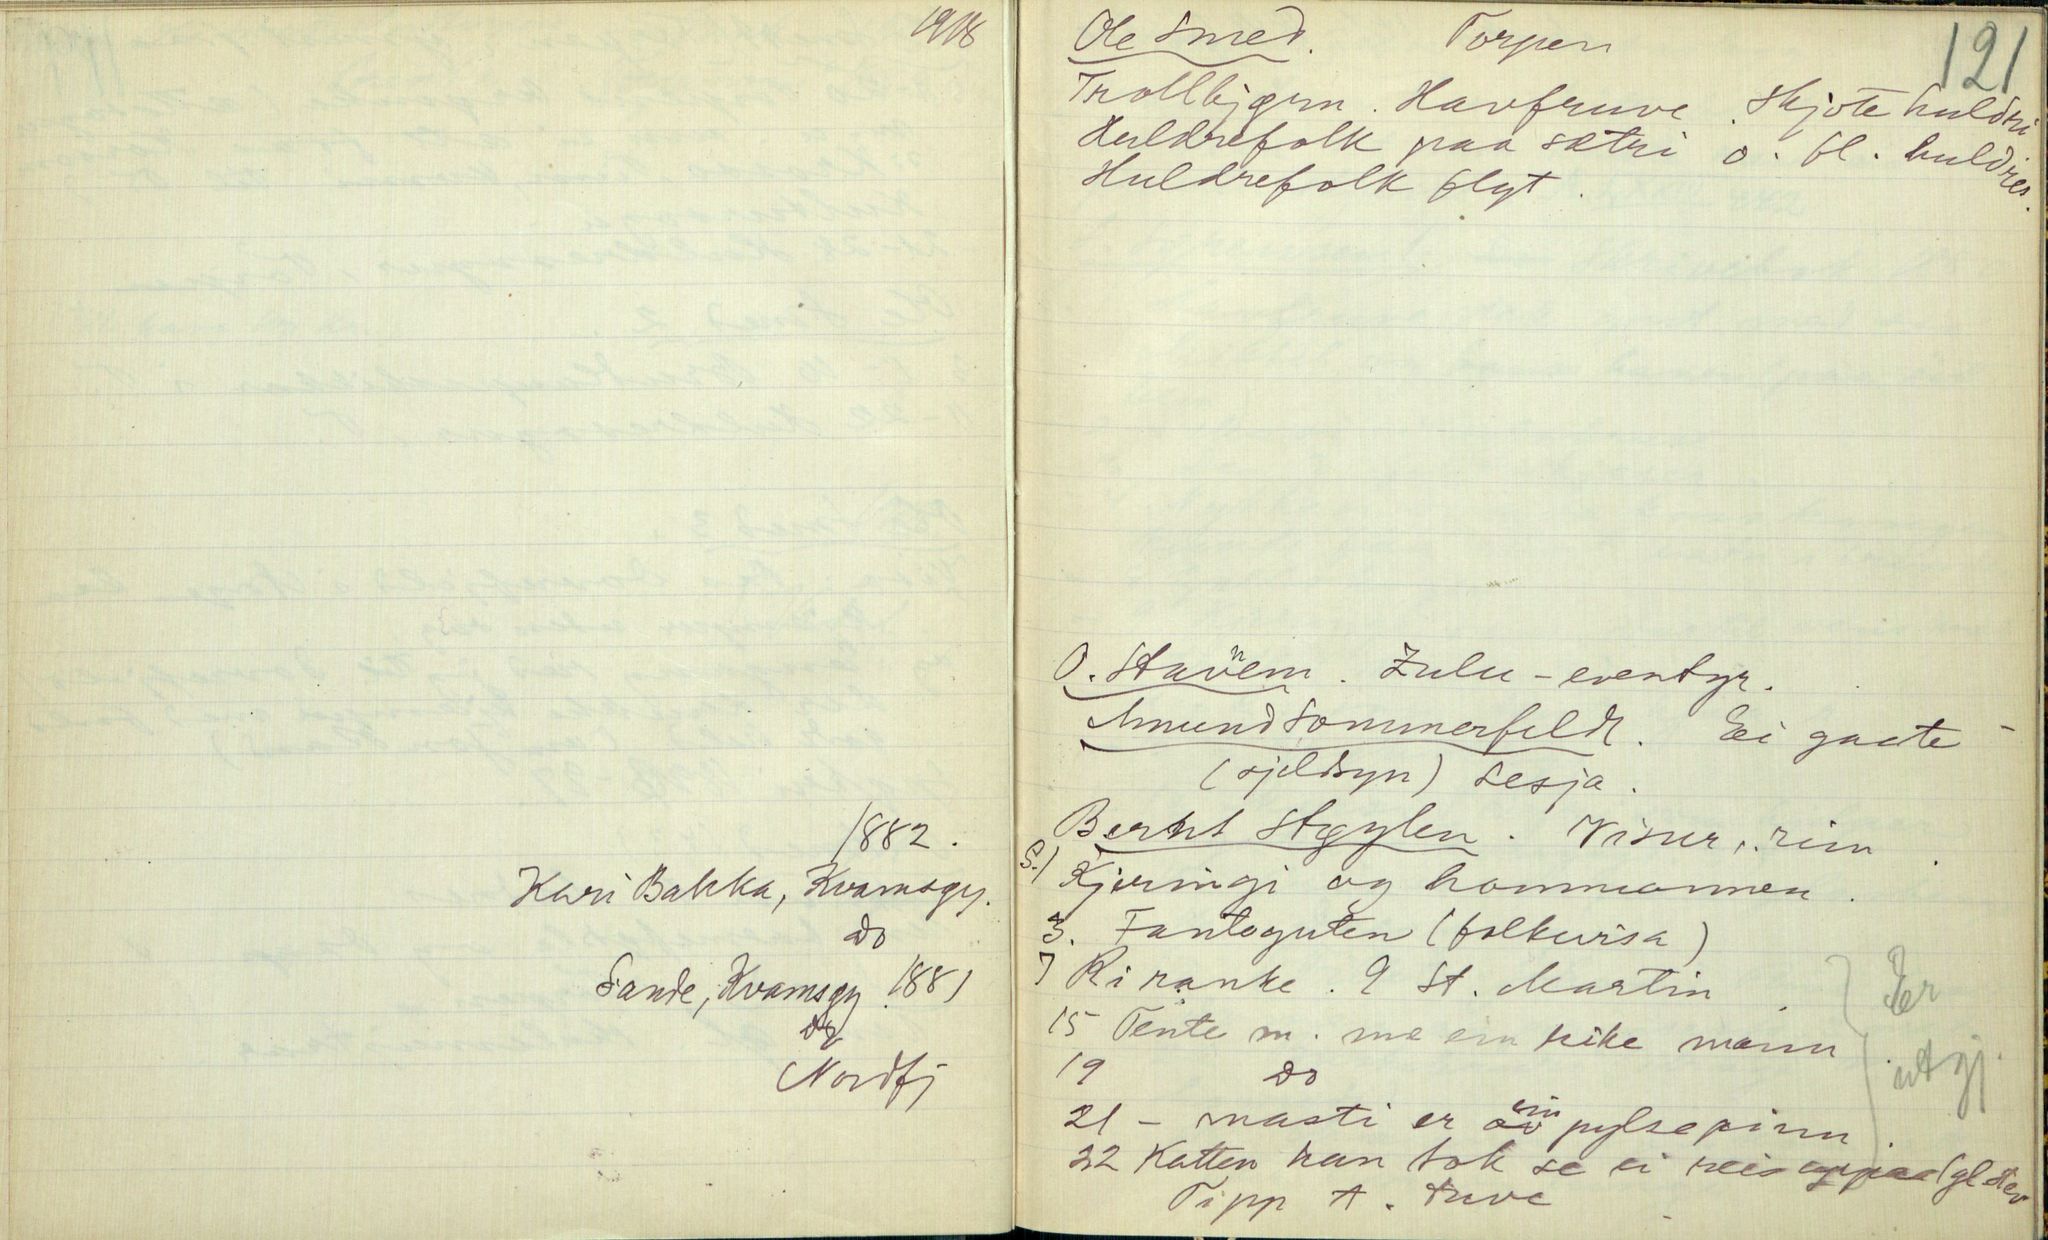 1918
1882.
Kari Bakka, Kvamsøy.
do
Sande, Kvamsøy 1881
do
Nordfj
121
Ole Smed. Torpen
Trollbjørn. Havfruve. Skjote huldri
Huldrefolk paa sætri o. fl. huldres.
Huldrefolk flyt.
O. Stavnem. Zulu-eventyr.
Amund Sommerfeldt. Ei gaate -
(sjeldsyn) Lesja.
Bernt Støylen. Visur, rim.
S. 1 Kjeringi og hommannen.
3. Fanteguten (folkevisa)
7 Ri ranke. 9 St. Martin
15 Tente m. me ein rike mann.
19 do
21 - masti er ein pylsepinn.
22 Katten han tok se ei reis
Tipp A. tuve
Er
utgj.